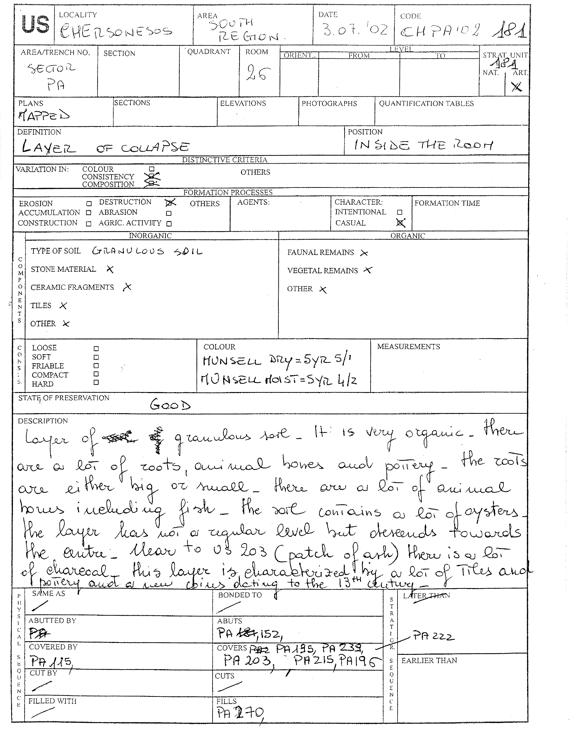 US
LOCALITY
CHERSONESOS
AREA
SOUTH
REGION
DATE
3.07.'02
CODE
CHPA'02 181
AREA/TRENCH NO.
SECTOR
PA
SECTION
QUADRANT
ROOM
26
LEVEL
ORIENT. FROM TO
STRAT. UNIT
181
NAT. ART.
X
PLANS
MAPPED
SECTIONS
ELEVATIONS
PHOTOGRAPHS
QUANTIFICATION TABLES
DEFINITION
LAYER OF COLLAPSE
POSITION
INSIDE THE ROOM
DISTINCTIVE CRITERIA
VARIATION IN: COLOUR
CONSISTENCY
COMPOSITION
OTHERS
FORMATION PROCESSES
EROSION DESTRUCTION OTHERS
ACCUMULATION ABRASION
CONSTRUCTION AGRIC. ACTIVITY
AGENTS:
CHARACTER:
INTENTIONAL
CASUAL
FORMATION TIME
COMPONENTS
INORGANIC
TYPE OF SOIL GRANULOUS SOIL
STONE MATERIAL X
CERAMIC FRAGMENTS X
TILES X
OTHER X
ORGANIC
FAUNAL REMAINS X
VEGETAL REMAINS X
OTHER X
CONS.
LOOSE
SOFT
FRIABLE
COMPACT
HARD
COLOUR
MUNSELL DRY=5YR 5/1
MUNSELL MOIST=5YR 4/2
MEASUREMENTS
STATE OF PRESERVATION
GOOD
DESCRIPTION
Layer of granulous soil - It is very organic - there
are a lot of roots, animal bones and pottery - the roots
are either big or small - there are a lot of animal
bones including fish - the soil contains a lot of oysters -
the layer has not a regular level but descends towards
the centre - Near to US 203 (patch of ash) there is a lot
of charcoal - this layer is characterized by a lot of Tiles and
pottery and a new coins dating to the 13th century -
PHYSICAL SEQUENCE
SAME AS
BONDED TO
ABUTTED BY
PA
ABUTS
PA 181, 152,
COVERED BY
PA 115,
COVERS PA195, PA 239,
PA 203, PA215, PA196
CUT BY
CUTS
FILLED WITH
FILLS
PA 270,
STRATIG. SEQUENCE
LATER THAN
PA 222
EARLIER THAN